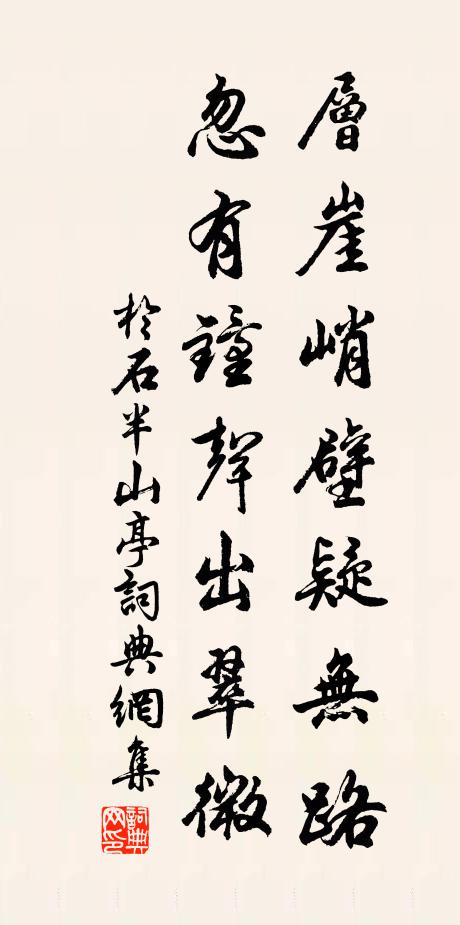 層崖峭壁疑無路
忽有鐘聲出翠微
於石半山亭詞典網集
詞典網印